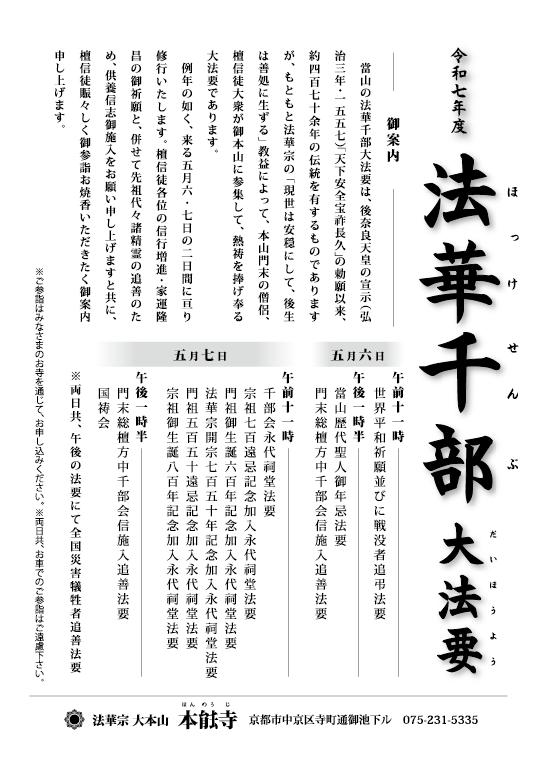 令和七年度
法華千部大法要
ほっけせんぶ
だいほうよう
御案内
當山の法華千部大法要は、後奈良天皇の宣示（弘
治三年・一五五七）「天下安全宝祚長久」の勅願以来、
約四百七十余年の伝統を有するものであります
が、もともと法華宗の「現世は安穏にして、後生
は善処に生ずる」教益によって、本山門末の僧侶、
檀信徒大衆が御本山に参集して、熱祷を捧げ奉る
大法要であります。
例年の如く、来る五月六・七日の二日間に亘り
修行いたします。檀信徒各位の信行増進・家運隆
昌の御祈願と、併せて先祖代々諸精霊の追善のた
め、供養信志御施入をお願い申し上げますと共に、
檀信徒賑々しく御参詣お焼香いただきたく御案内
申し上げます。
五月六日
午前十一時
世界平和祈願並びに戦没者追弔法要
午後一時半
當山歴代聖人御年忌法要
門末総檀方中千部会信施入追善法要
五月七日
午前十一時
千部会永代祠堂法要
宗祖七百遠忌記念加入永代祠堂法要
門祖御生誕六百年記念加入永代祠堂法要
法華宗開宗七百五十年記念加入永代祠堂法要
門祖五百五十遠忌記念加入永代祠堂法要
宗祖御生誕八百年記念加入永代祠堂法要
午後一時半
門末総檀方中千部会信施入追善法要
国祷会
※両日共、午後の法要にて全国災害犠牲者追善法要
※ご参詣はみなさまのお寺を通じて、お申し込みください。※両日共、お車でのご参詣はご遠慮下さい。
法華宗 大本山 本能寺 京都市中京区寺町通御池下ル 075-231-5335
ほんのうじ